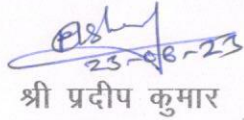 23-08-23
श्री प्रदीप कुमार